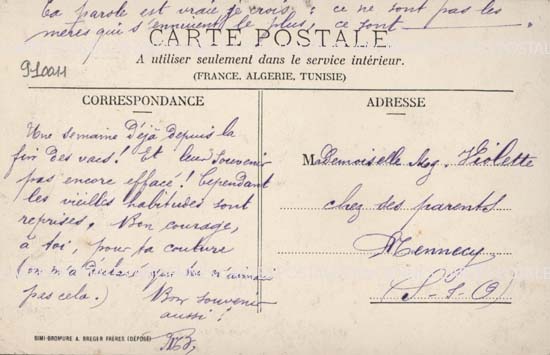 La parole est vraie je crois, "ce ne sont pas les
mères qui s'ennuient le plus, ce sont
CARTE POSTALE
A utiliser seulement dans le service intérieur.
(FRANCE, ALGERIE, TUNISIE)
CORRESPONDANCE
Une semaine déjà depuis la
fin des vacs! Et leur souvenir
pas encore effacé! Cependant
les vieilles habitudes sont
reprises. Bon courage,
à toi, pour ta couture
(on m'a que tu n'aimais
pas cela.) Bon souvenir
aussi!
ADRESSE
Mademoiselle Violette
chez des parents
Mennecy
(S.-&-O)
SIMI-BROMURE A. BREGER FRÈRES (DÉPOSÉ)